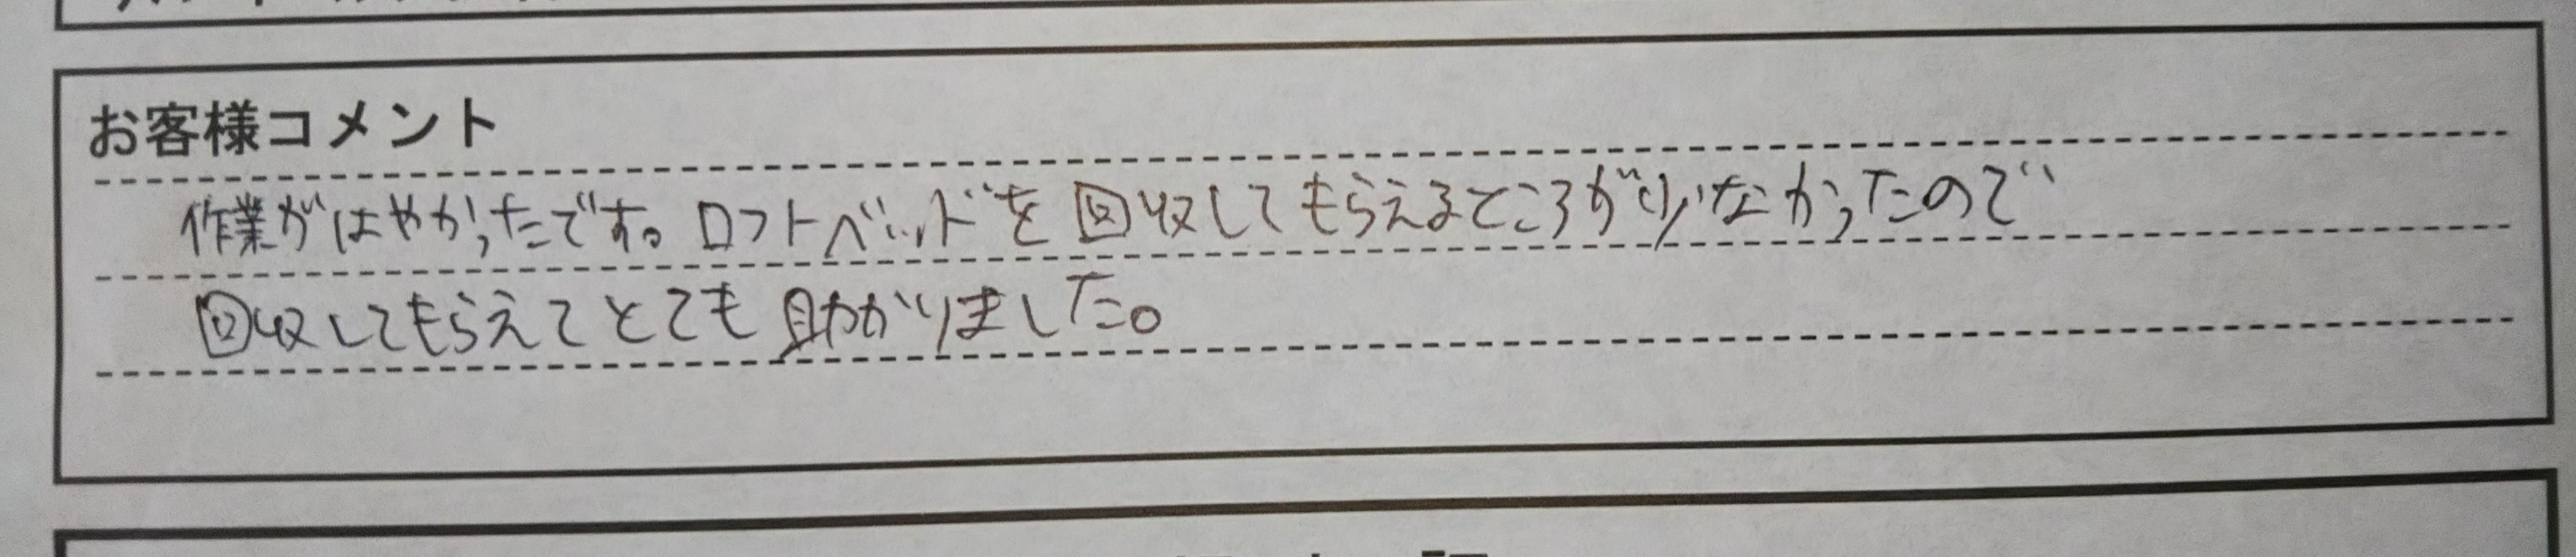 お客様コメント
作業がはやかったです。ロフトベッドを回収してもらえるところが少なかったので
回収してもらえてとても助かりました。